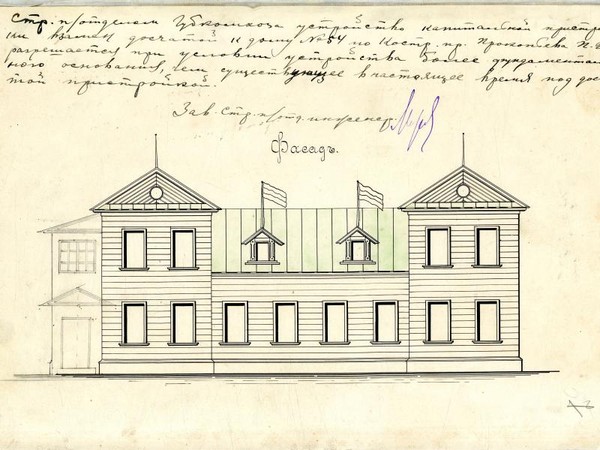 Стр. п/отделом Губкомхоза устройство капитальной пристрой
ки взамен досчатой к дому № 54 по Костр. пр. Прокофьева П.
разрешается при условии устройства более фундаменталь
ного основания, чем существующее в настоящее время под дос
той пристройкой.
Зав. Стр. п/отд. инженер
Фасадъ.